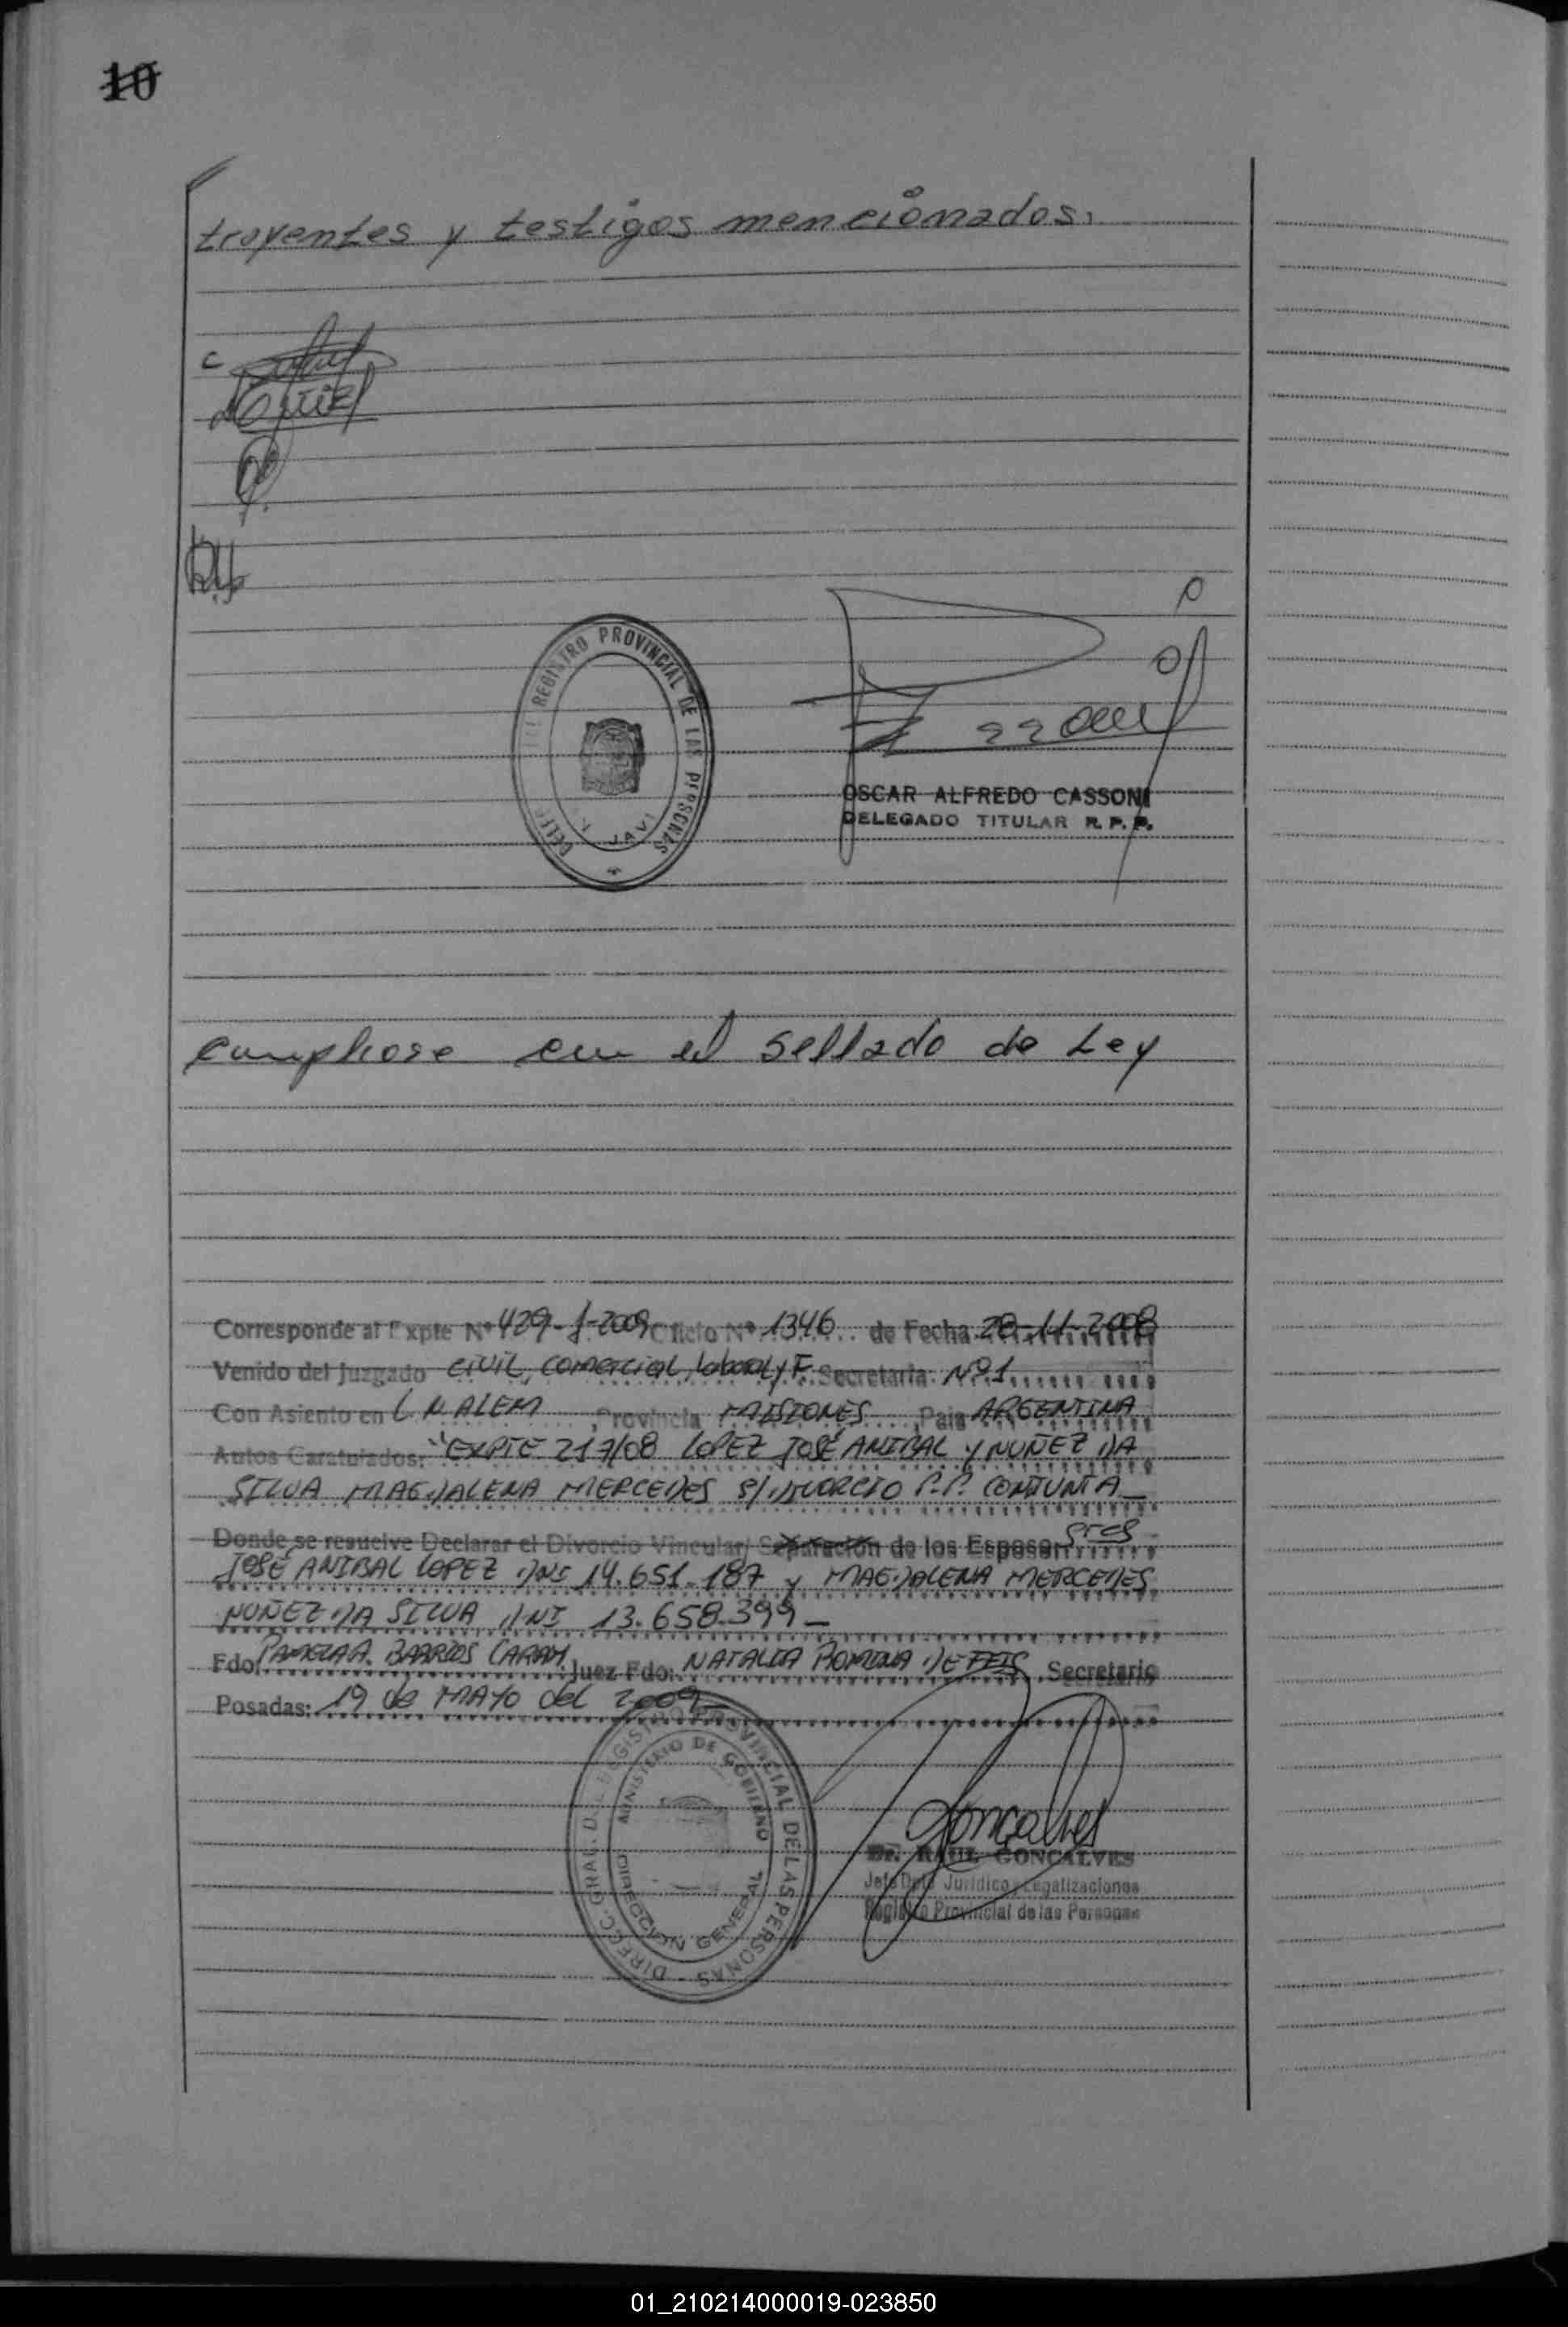 10
trayentes y testigos mencionados.
REGISTRO PROVINCIAL DE LAS PERSONAS
JAVI
OSCAR ALFREDO CASSONI
DELEGADO TITULAR R. P. P.
en el sellado de Ley
Corresponde al Expte Nº 429-J-2009 Oficio Nº 1346 de Fecha 28-11-2008
Venido del Juzgado CIVIL, COMERCIAL, laboral y F. Secretaria: Nº 1
Con Asiento en L N ALEM, Provincia MISIONES, Pais ARGENTINA
Autos Caratulados: "EXPTE 217/08 LOPEZ JOSÉ ANIBAL y NUÑEZ DA
SILVA MAGDALENA MERCEDES S/ DIVORCIO P.P. CONJUNTA
Donde se resuelve Declarar el Divorcio Vincular/ Separación de los Esposos: Sres
JOSÉ ANIBAL LOPEZ DNI 14.651.187 y MAGDALENA MERCEDES
NUÑEZ DA SILVA DNI 13.658.399-
Fdo: PAMELA A. BARRIOS CARAM Juez Fdo: NATALIA ROMINA DE FEIS Secretario
Posadas: 19 de MAYO del 2009-
DIRECC. GRAL. DEL REGISTRO PROVINCIAL DE LAS PERSONAS
MINISTERIO DE GOBIERNO
DIRECCION GENERAL
Dr. RAUL GONCALVES
Jefe Dpto Jurídico y Legalizaciones
Registro Provincial de las Personas
01_210214000019-023850